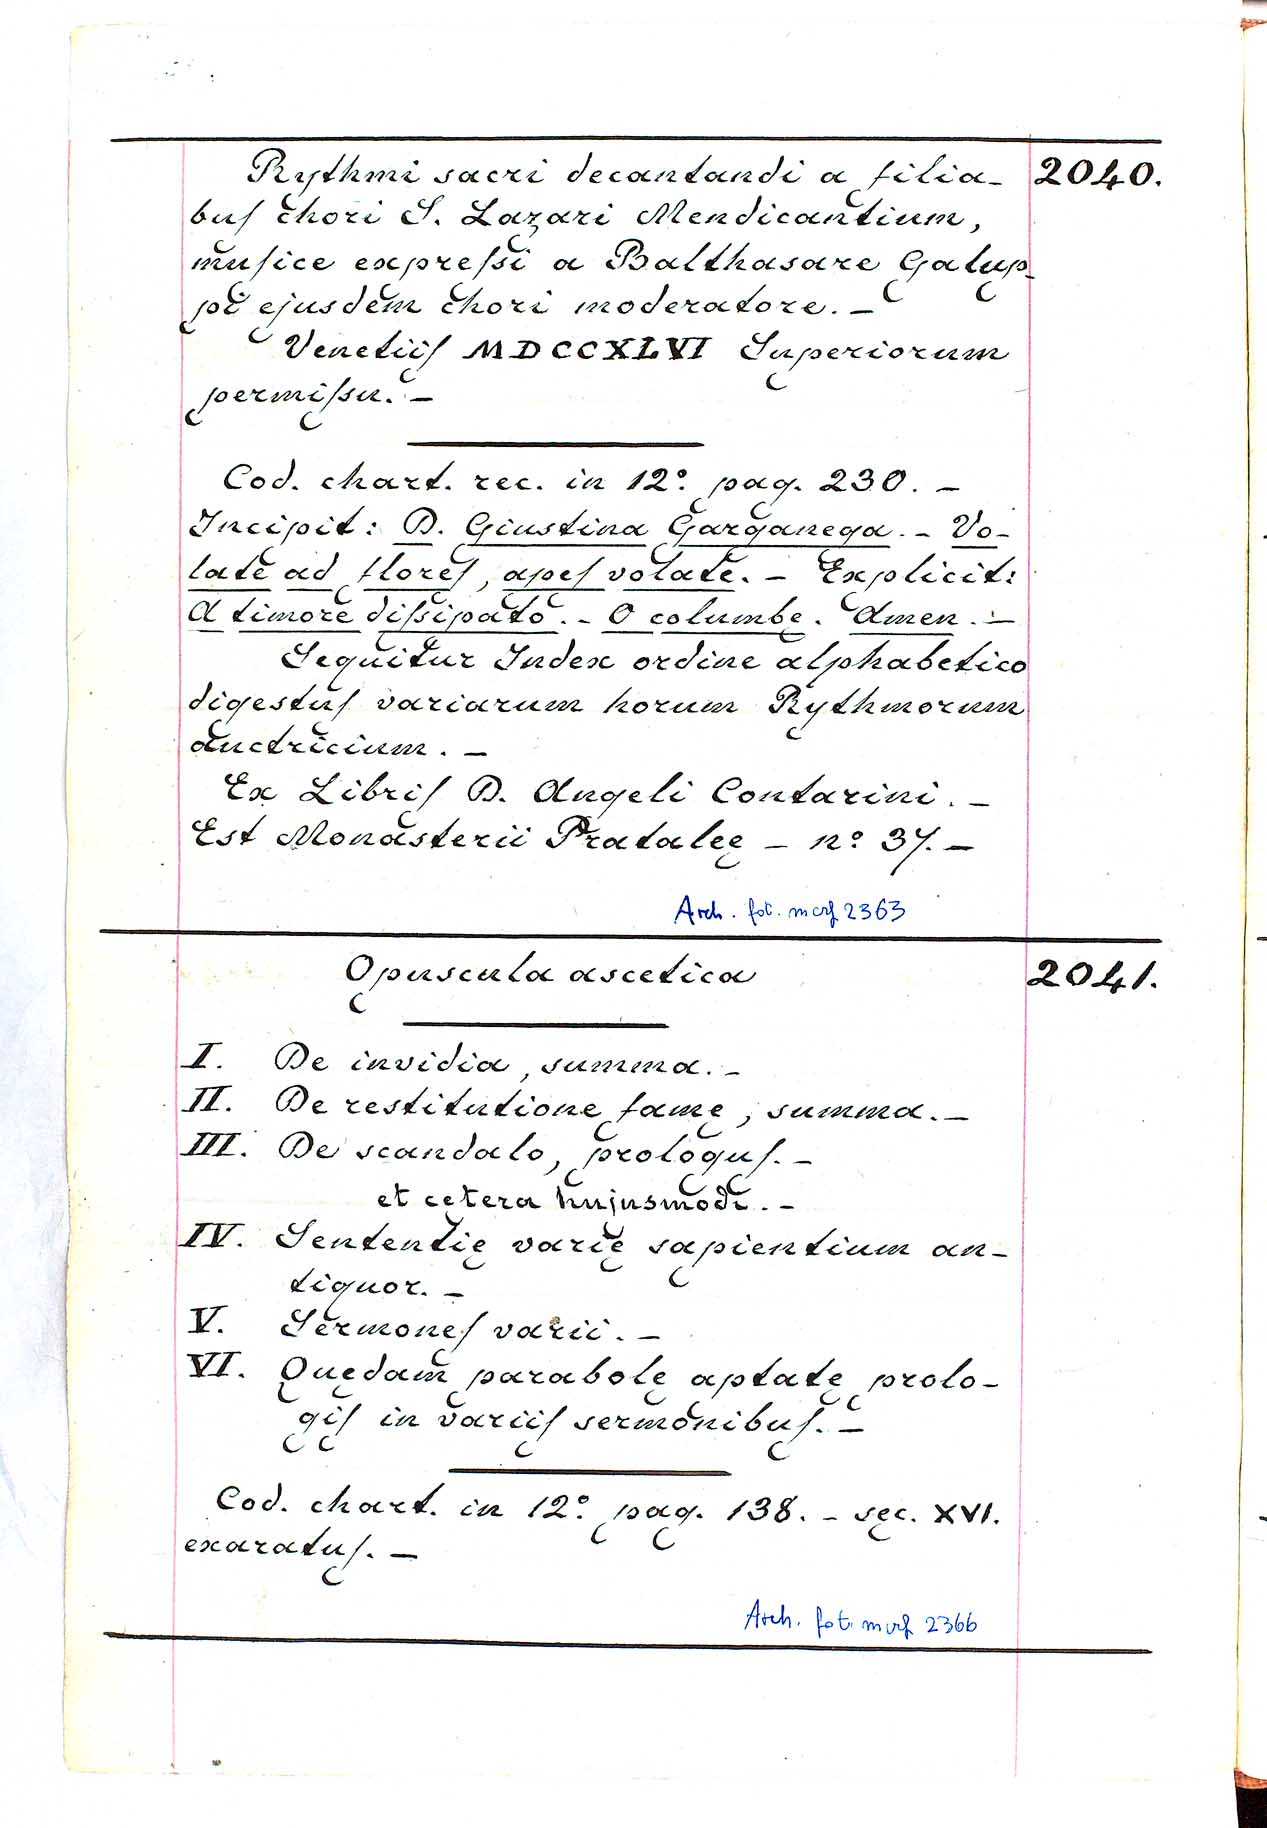 Rythmi sacri decantandi a filia- 2040.
buſ chori S. Lazari Mendicantium,
muſice expreſsi a Balthasare Galup-
pi ejusdem chori moderatore. –
Venetiiſ MDCCXLVI Superiorum
permiſsu. –
Cod. chart. rec. in 12º. pag. 230. –
Incipit: D. Giustina Garganega. – Vo-
late ad floreſ, apeſ volate. – Explicit:
A timore diſsipato. – O columbę. Amen. –
Sequitur Index ordine alphabetico
digestuſ variarum horum Rythmorum
auctricium. –
Ex Libriſ D. Angeli Contarini. –
Est Monasterii Pratalee – nº. 37. –
Arch. fot. mcrf 2363
Opuscula ascetica 2041.
I. De invidia, summa. –
II. De restitutione famę, summa. –
III. De scandalo, prologuſ. –
et cetera hujusmodi. –
IV. Sententię varię sapientium an-
tiquor. –
V. Sermoneſ varii. –
VI. Quędam parabolę aptatę prolo-
giſ in variiſ sermonibuſ. –
Cod. chart. in 12º. pag. 138. – sęc. XVI.
exaratuſ. –
Arch. fot. mcrf 2366